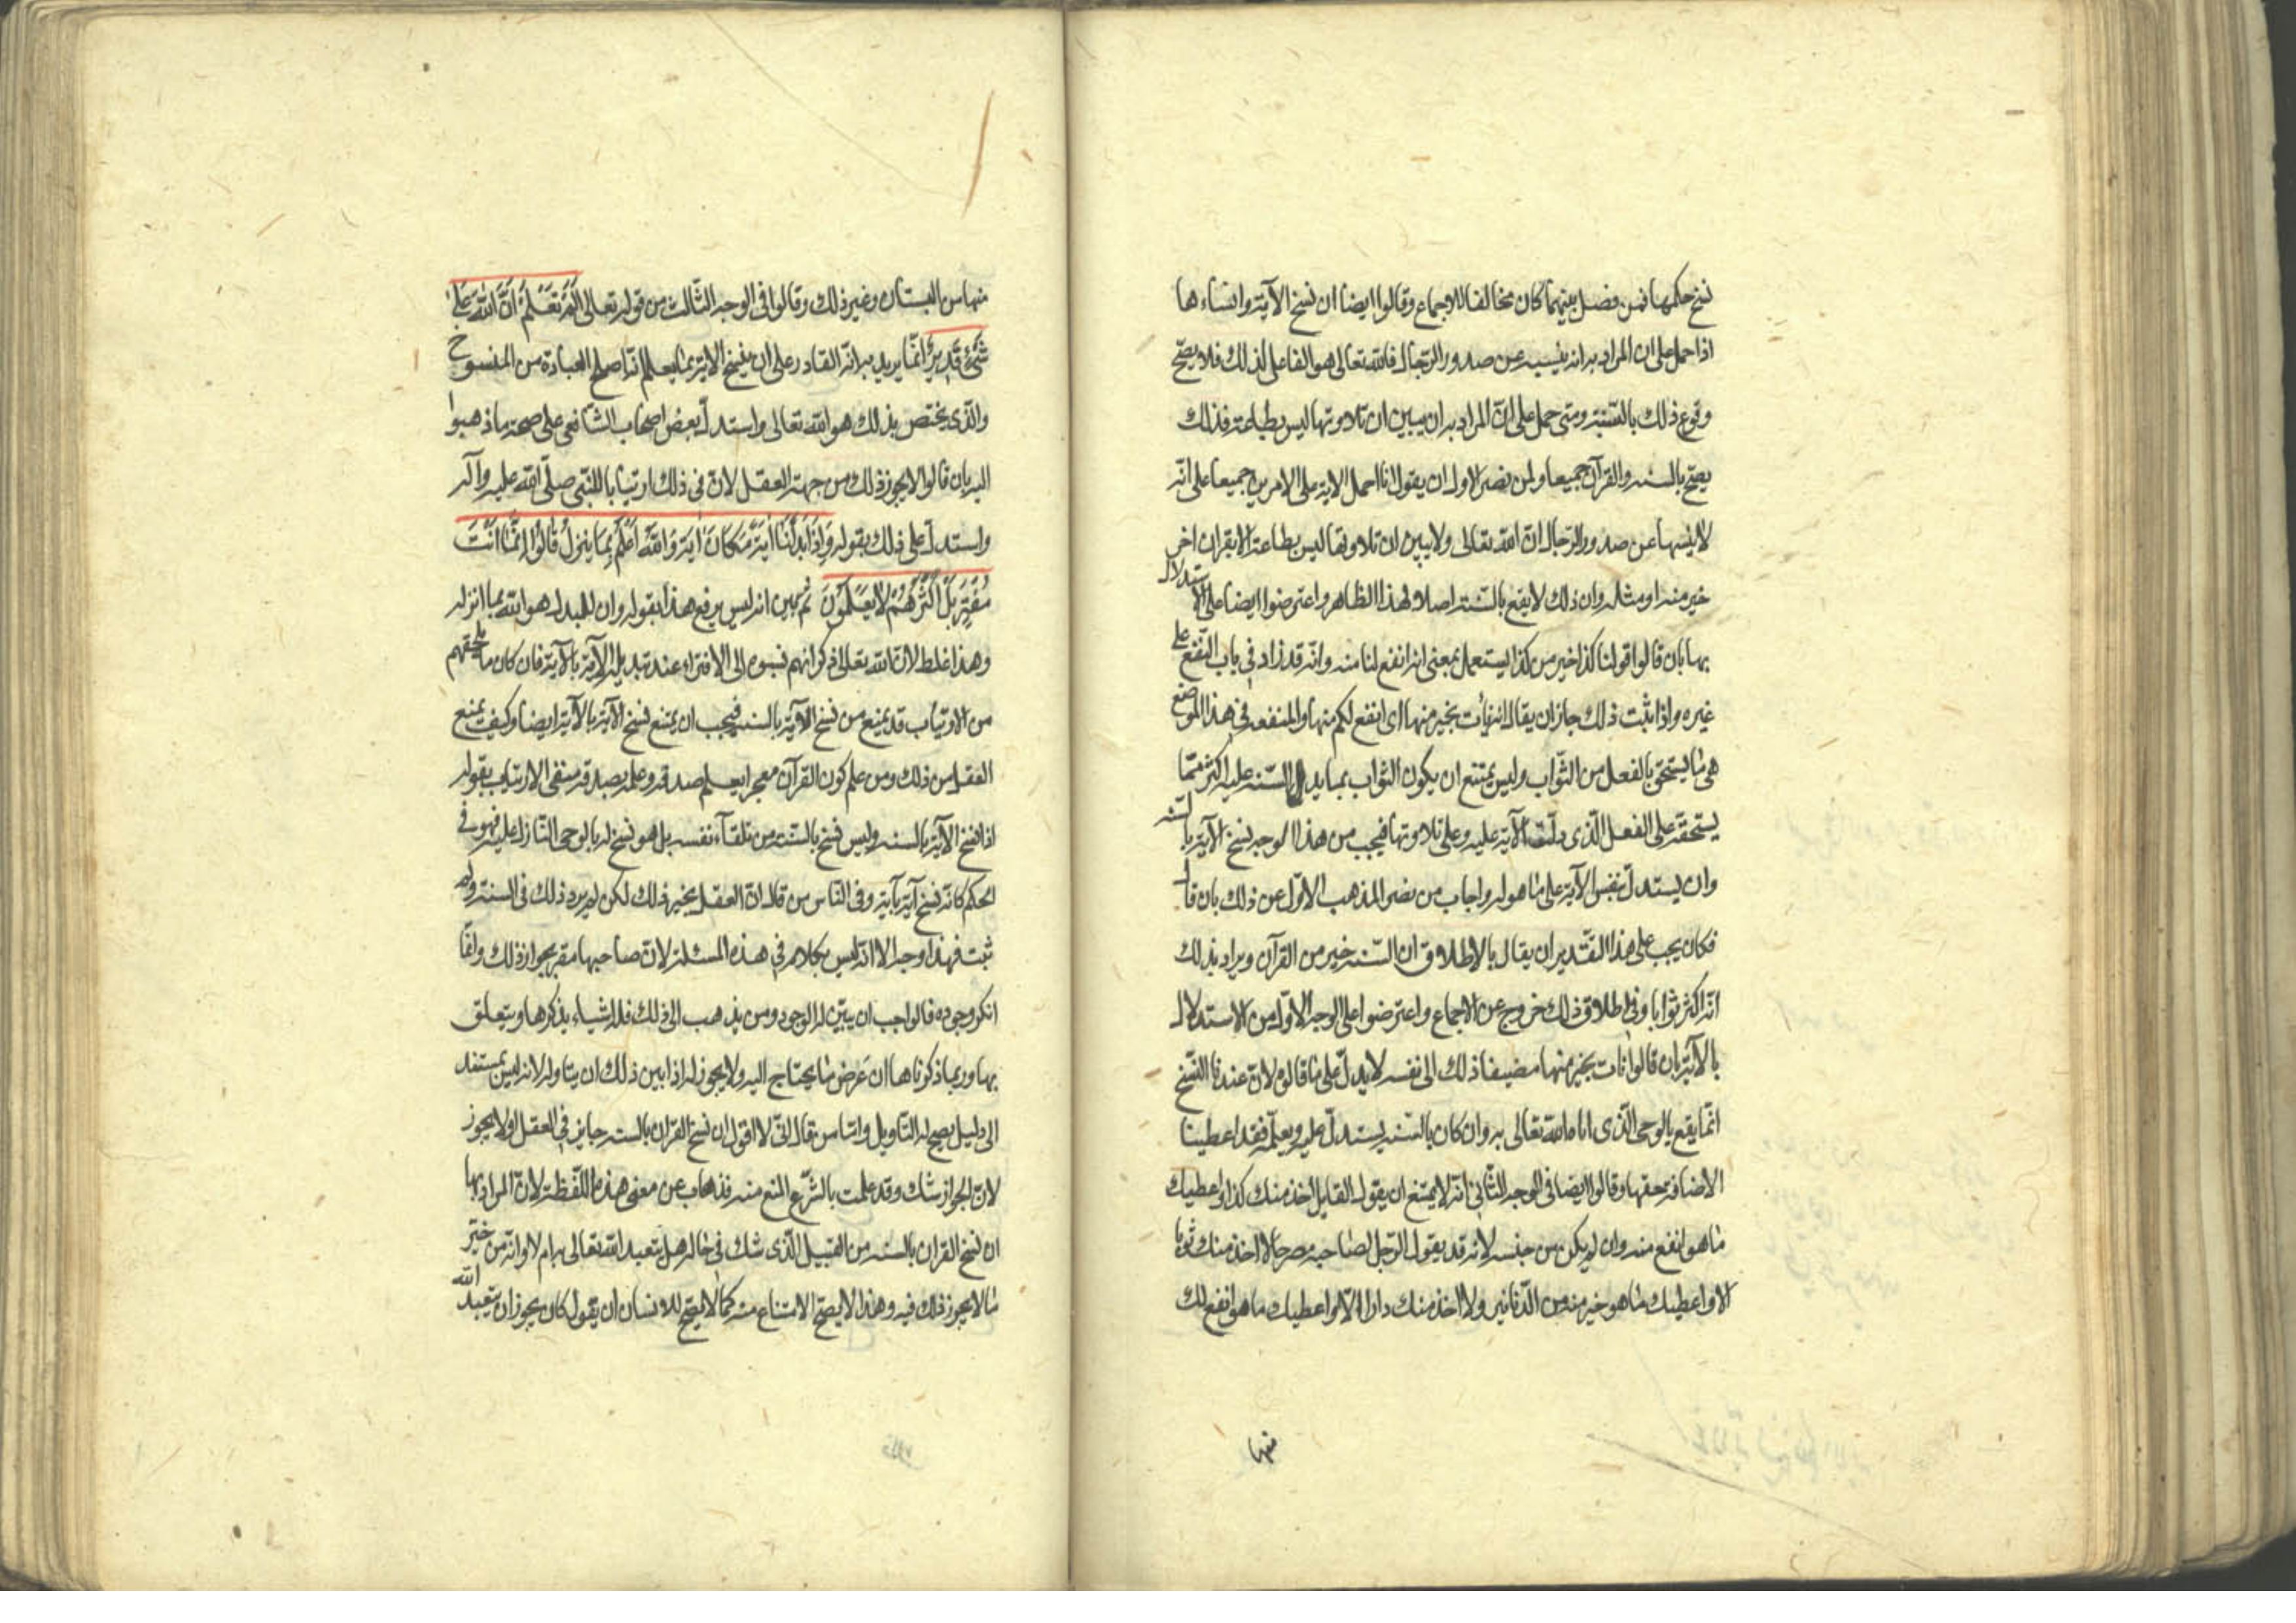 نسخ حكمها فمن فصل بينهما كان مخالفا للاجماع وقالوا ايضا ان نسخ الآية وانساءها
اذا حمل على ان المراد به انه ينسيه عن صدور الرّجال فالله تعالى هو الفاعل لذلك فلا يصحّ
وقوع ذلك بالسّنة ومتى حمل على انّ المراد به ان يبين ان تلاوتها ليس بطاعة فذلك
يصحّ بالسنه والقرآن جميعا ولمن نصر الاول ان يقول انا احمل الآية على الامرين جميعا على انّه
لا ينسها عن صدور الرّجال انّ الله تعالى ولا يبين ان تلاوتها ليس بطاعة الا بقران اخر
خير منه او مثله وان ذلك لا يقع بالسّنة اصلا لهذا الظاهر واعترضوا ايضا على الاستدلال
بها بان قالوا قولنا كذا خير من كذا يستعمل بمعنى انه انفع لنا منه وانّه قد زاد في باب النّفع على
غيره واذا ثبت ذلك جاز ان يقال انه نأت بخير منها اى انفع لكم منها والمنفعة في هذا الموضع
هى ما يستحق بالفعل من الثّواب وليس يمتنع ان يكون الثواب بما يدل السّنه عليه اكثر ممّا
يستحقّه على الفعل الّذى دلّت الآية عليه وعلى تلاوتها فيجب من هذا الوجه نسخ الآية بالسّنه
وان يستدلّ بنفس الآية على ما هو له واجاب من نصر المذهب الاوّل عن ذلك بان قال
فكان يجب على هذا التقدير ان يقال بالاطلاق ان السّنه خير من القرآن ويراد بذلك
انّه اكثر ثوابا وفى اطلاق ذلك خروج عن الاجماع واعترضوا على الوجه الاوّل من الاستدلال
بالآية بان قالوا نات بخير منها مضيفا ذلك الى نفسه لا يدلّ على ما قالوا لانّ عندنا النّسخ
انّما يقع بالوحى الّذى اتاه الله تعالى به وان كان بالسّنه يستدلّ عليه ويعلم فقد اعطينا
الاضافة حقها وقالوا ايضا فى الوجه الثّانى انّه لا يمتنع ان يقول القايل لا اخذ منك كذا واعطيك
ما هو انفع منه وان لم يكن من جنسه لانه قد يقول الرّجل لصاحبه مصرحا لا اخذ منك ثوبا
الا واعطيك ما هو خير منه من الدّنانير ولا اخذ منك دارا الّا واعطيك ما هو انفع لك
منها
منها من البستان وغير ذلك وقالوا فى الوجه الثّالث من قوله تعالى اَلَمْ تَعْلَمْ اَنَّ اللّٰهَ عَلى
شَىْءٍ قَدِيرٌ انّما يريد به انّه القادر على ان ينسخ الآية بما يعلم انّه اصلح للعبادة من المنسوخ
والّذى يختص بذلك هو الله تعالى واستدلّ بعض اصحاب الشّافعى على صحة ما ذهبوا
اليه بان قالوا لا يجوز ذلك من جهة العقل لانّ فى ذلك ارتيابا بالنّبى صلّى الله عليه وآله
واستدلّ على ذلك بقوله وَاِذَا بَدَّلْنَا اٰيَةً مَكَانَ اٰيَةٍ وَاللّٰهُ اَعْلَمُ بِمَا يُنَزِّلُ قَالُوا اِنَّمَا اَنْتَ
مُفْتَرٍ بَلْ اَكْثَرُهُمْ لَا يَعْلَمُونَ ثم بين انه ليس يرفع هذا بقوله وان المبدل هو الله بما انزله
وهذا غلط لانّ الله تعالى ذكر انهم نسبوه الى الافتراء عند تبديل الآية بالآية فان كان ما يلحقهم
من الارتياب قد يمنع من نسخ الآية بالسنه فيجب ان يمنع نسخ الآية بالآية ايضا وكيف يمنع
العقل من ذلك ومن علم كون القرآن معجرا يعلم صدقه وعلمه بصدقه منفى الارتياب بقوله
اذا نسخ الآية بالسنه وليس نسخ بالسّنة من تلقآء نفسه بل هو نسخ له بالوحى النّازل عليه فهو فى
الحكم كانّه نسخ آية بآية وفى النّاس من قال انّ العقل يجيز ذلك لكن لم يرد ذلك فى السنة ولو
ثبت فهذا وجه الا انّه ليس بكلام فى هذه المسئلة لانّ صاحبها مقر بجواز ذلك وانّما
انكر وجوده فالواجب ان يبيّن له الوجود ومن يذهب الى ذلك فله اشياء يذكرها ويتعلق
بها وربما ذكرناها ان عرض ما يحتاج اليه ولا يجوز له اذا بين ذلك ان يتاوله لانه ليس يستند
الى دليل يصحّ له التّاويل وامّا من يقال انّى لا اقول ان نسخ القران بالسنه جايز فى العقل اولا يجوز
لانّ الجواز شك وقد علمت بالشّرع المنع منه فذهاب عن معنى هذه اللّفظة لانّ المراد بها
ان نسخ القران بالسنه من القبيل الّذى شك فى حاله هل يتعبد الله تعالى به ام لا وانّه من خيّر
ما لا يجوز ذلك فيه وهذا لا يصحّ الامتناع منه كما لا يصحّ للانسان ان يقول كان يجوز ان يتعبد الله